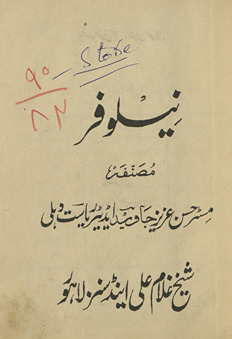 Stabe
۹۰
۸۲
نیلوفر
مصنفہ
مسٹر حسن عزیز جاوید ایڈیٹر ریاست دہلی
شیخ غلام علی اینڈ سنز لاہور